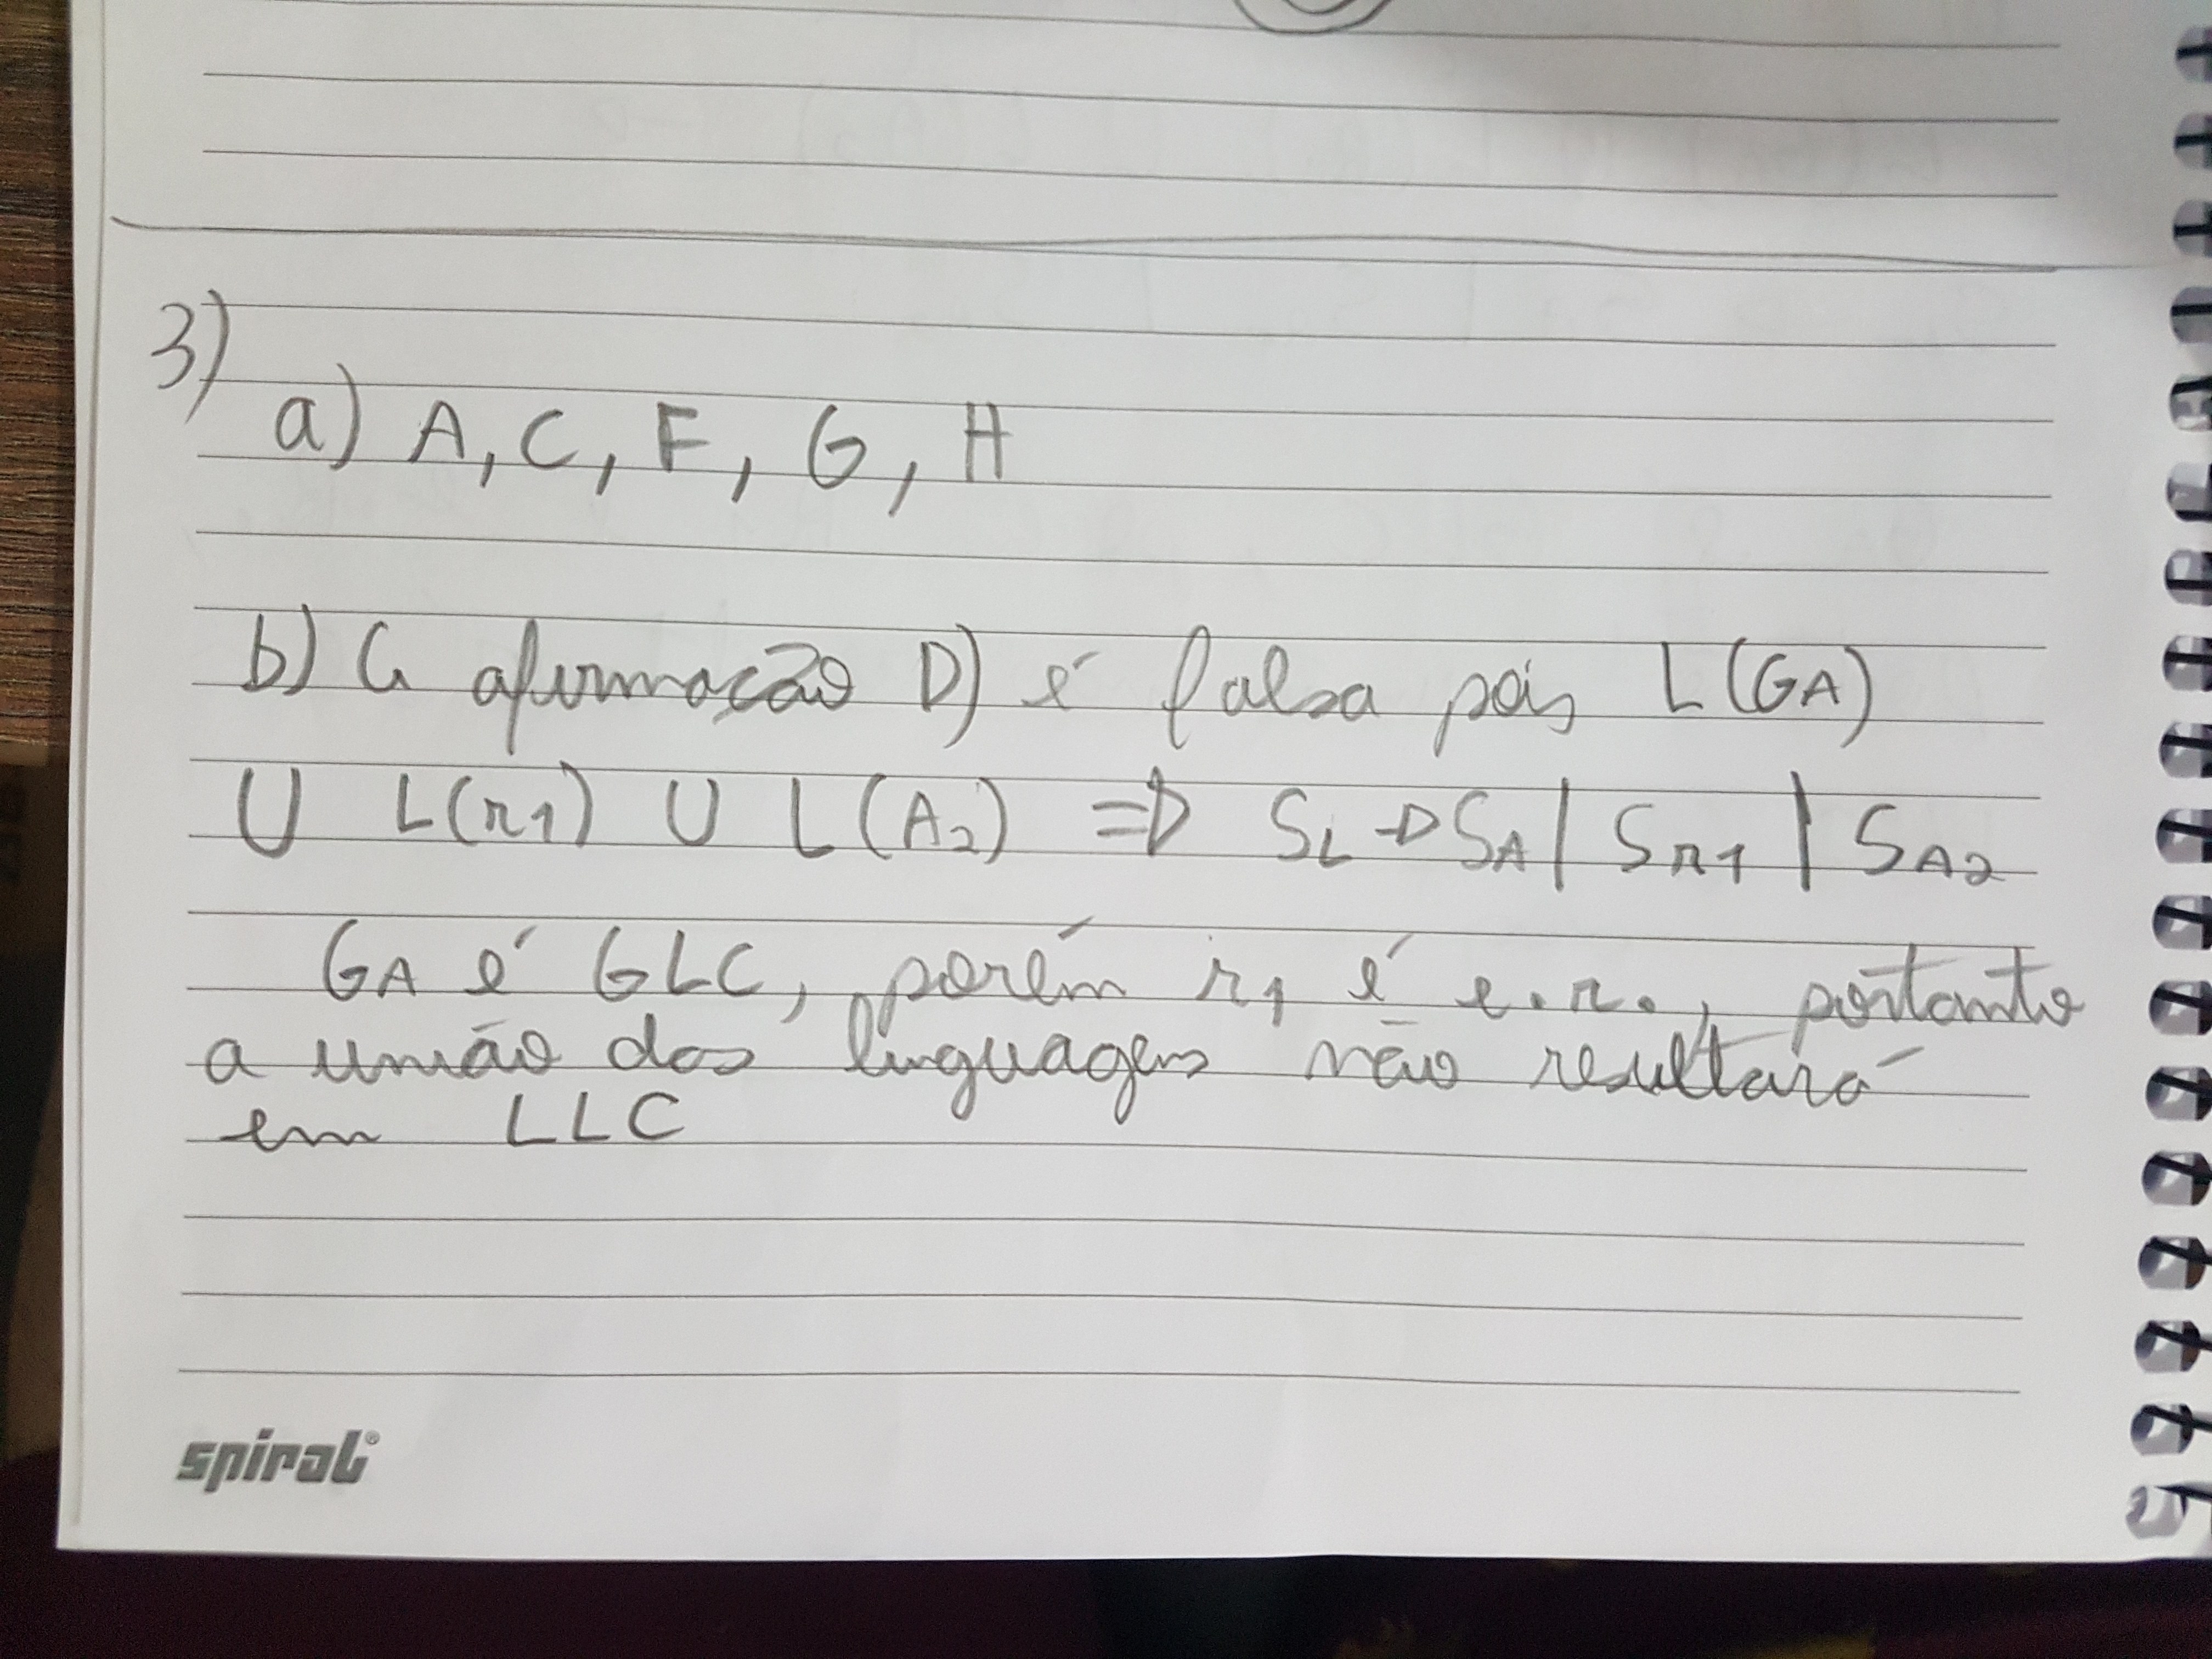 3)
a) A, C, F, G, H
b) A afirmação D) é falsa pois L(GA)
U L(r1) U L(A2) => SL -> SA | Sr1 | SA2
GA é GLC, porém r1 é e.r., portanto
a união das linguagens não resultará
em LLC
spiral®